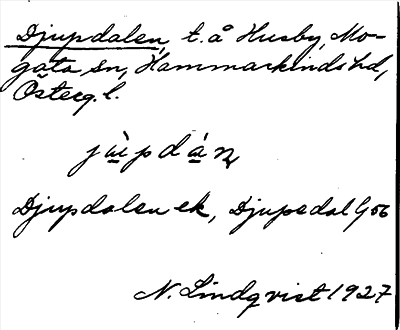 Djupdalen, t. å Husby, Mo-
gata sn, Hammarkinds hd,
Österg. l.
jùpdán
Djupdalen ek, Djupedal G 56
N. Lindqvist 1927